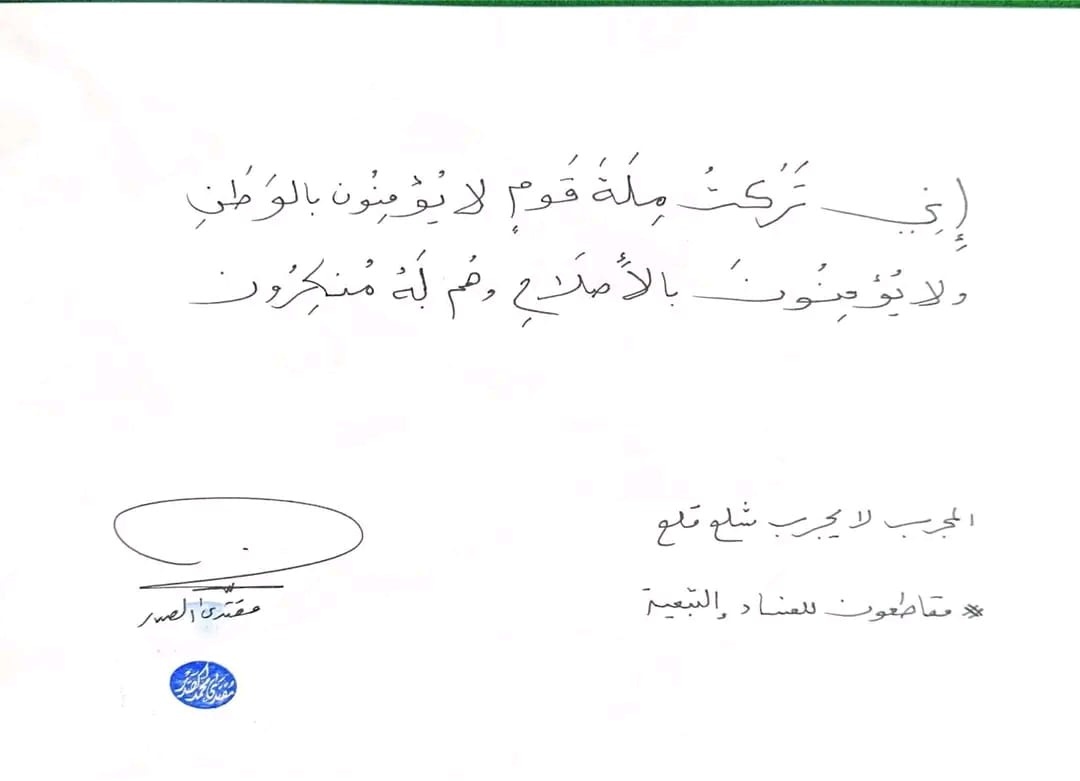 إِنِي تَرَكتُ مِلَةَ قَومٍ لا يُؤمِنُون بالوَطَنِ
ولا يُؤمِنُونَ بالأَصلَاحِ وهُم لَهُ مُنكِرُون
المجرب لا يجرب شلع قلع
* مقاطعون للفساد والتبعية
مقتدى الصدر
مقتدى محمد الصدر